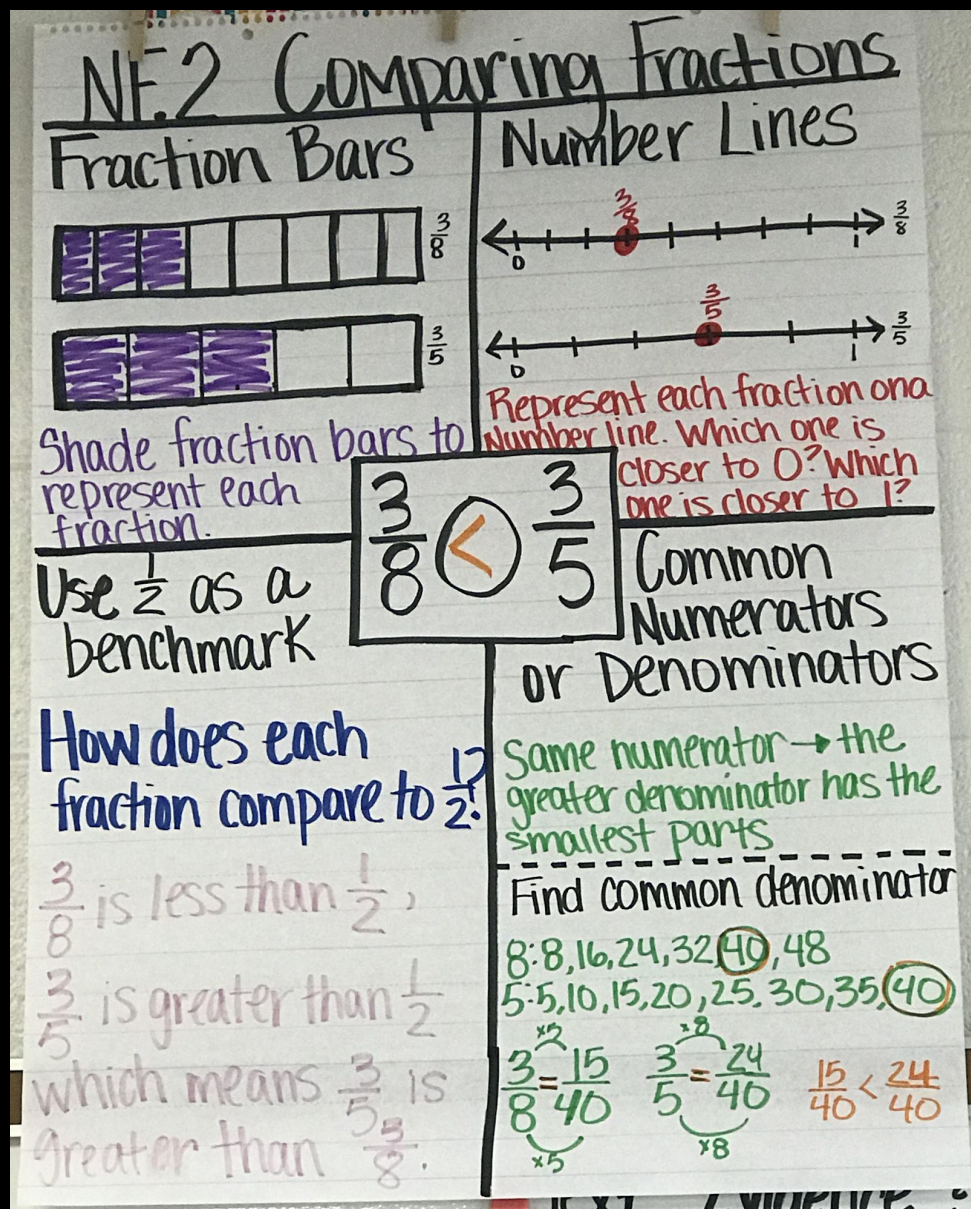 NF.2 Comparing Fractions
Fraction Bars
3/8
3/5
Shade fraction bars to
represent each
fraction.
Number Lines
3/8
0 1 3/8
3/5
0 1 3/5
Represent each fraction on a
Number line. Which one is
closer to 0? Which
one is closer to 1?
3/8 < 3/5
Use 1/2 as a
benchmark
How does each
fraction compare to 1/2?
3/8 is less than 1/2,
3/5 is greater than 1/2
which means 3/5 is
greater than 3/8.
Common
Numerators
or Denominators
Same numerator → the
greater denominator has the
smallest parts
Find common denominator
8: 8, 16, 24, 32, 40, 48
5: 5, 10, 15, 20, 25, 30, 35, 40
×5 ×8
3/8 = 15/40 3/5 = 24/40 15/40 < 24/40
×5 ×8